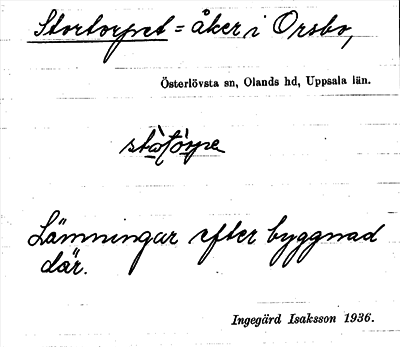 Stortorpet = åker i Orsbo,
Österlövsta sn, Olands hd, Uppsala län.
stàtórpe
Lämningar efter byggnad
där.
Ingegärd Isaksson 1936.